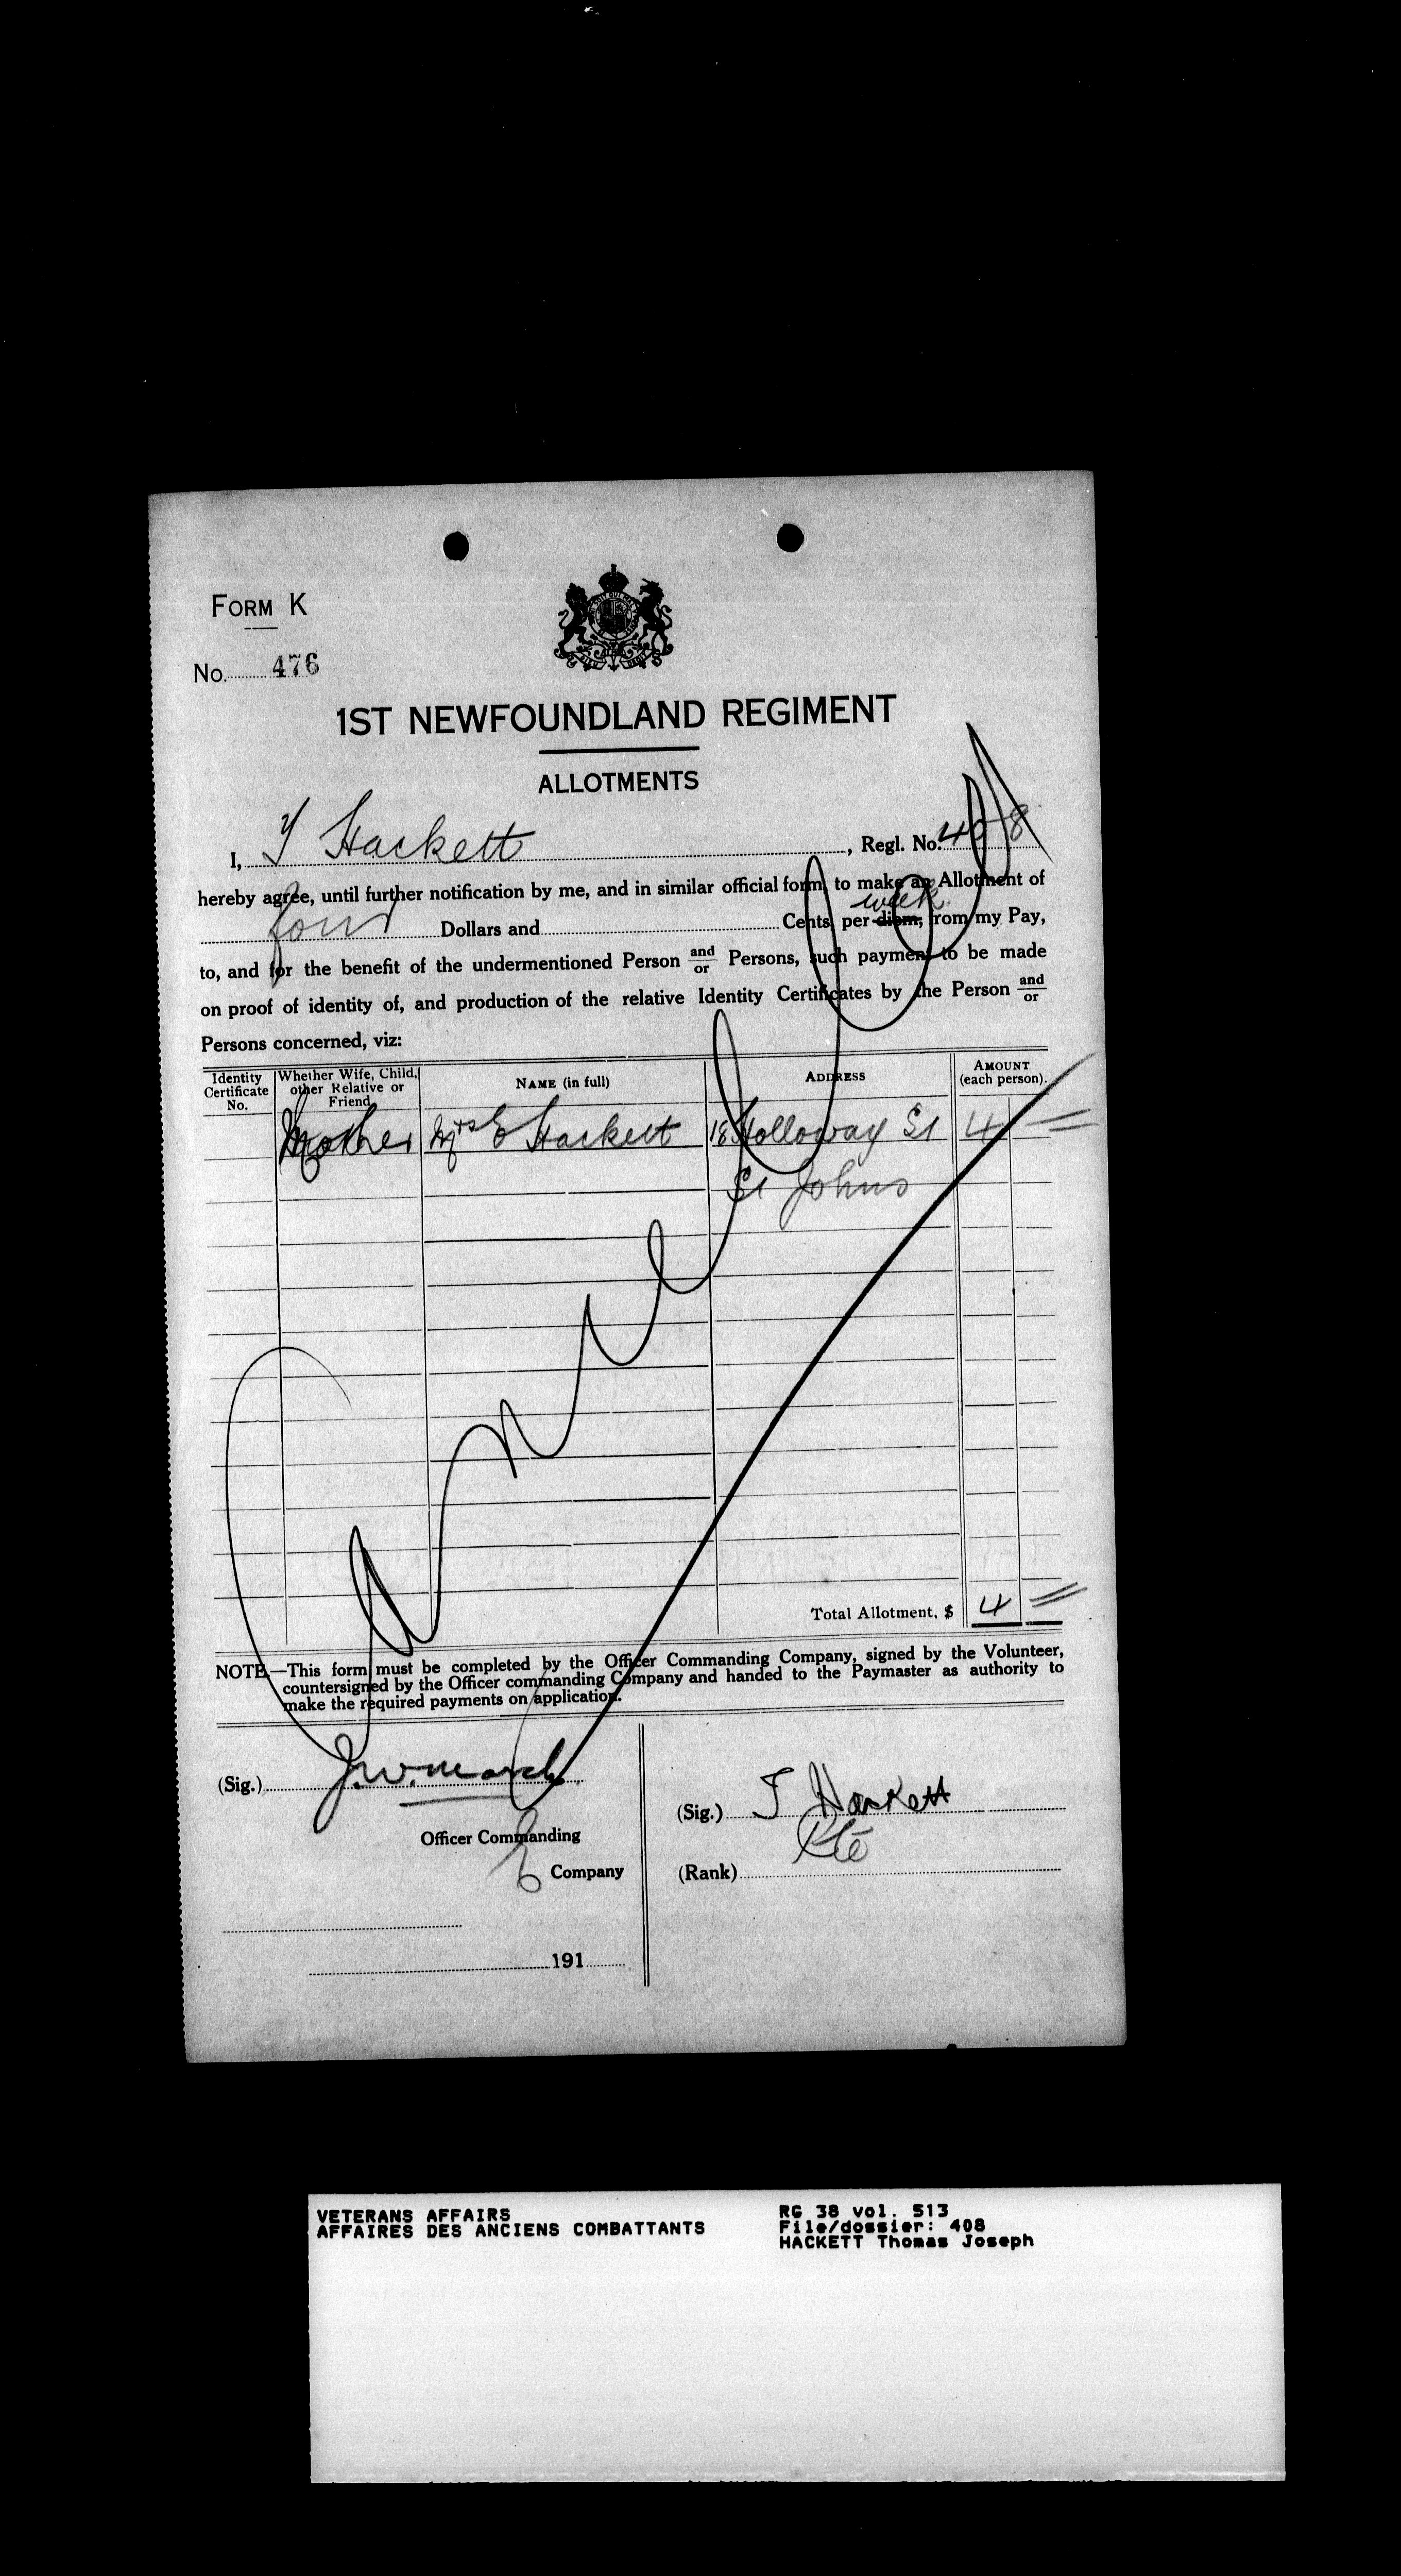 FORM K
No. 476
1ST NEWFOUNDLAND REGIMENT
ALLOTMENTS
I, T Hackett, Regl. No. 408
hereby agree, until further notification by me, and in similar official form, to make an Allotment of
four Dollars and Cents, per diem, week from my Pay,
to, and for the benefit of the undermentioned Person and/or Persons, such payment to be made
on proof of identity of, and production of the relative Identity Certificates by the Person and/or
Persons concerned, viz:
Identity Certificate No. Whether Wife, Child, other Relative or Friend NAME (in full) ADDRESS AMOUNT (each person).
Mother Mrs E Hackett 18 Holloway St 4
St Johns
Cancelled
Total Allotment, $ 4
NOTE.—This form must be completed by the Officer Commanding Company, signed by the Volunteer,
countersigned by the Officer commanding Company and handed to the Paymaster as authority to
make the required payments on application.
(Sig.) J.W. March
Officer Commanding
Company
191
(Sig.) T Hackett
(Rank) Pte
VETERANS AFFAIRS
AFFAIRES DES ANCIENS COMBATTANTS
RG 38 vol. 513
File/dossier: 408
HACKETT Thomas Joseph